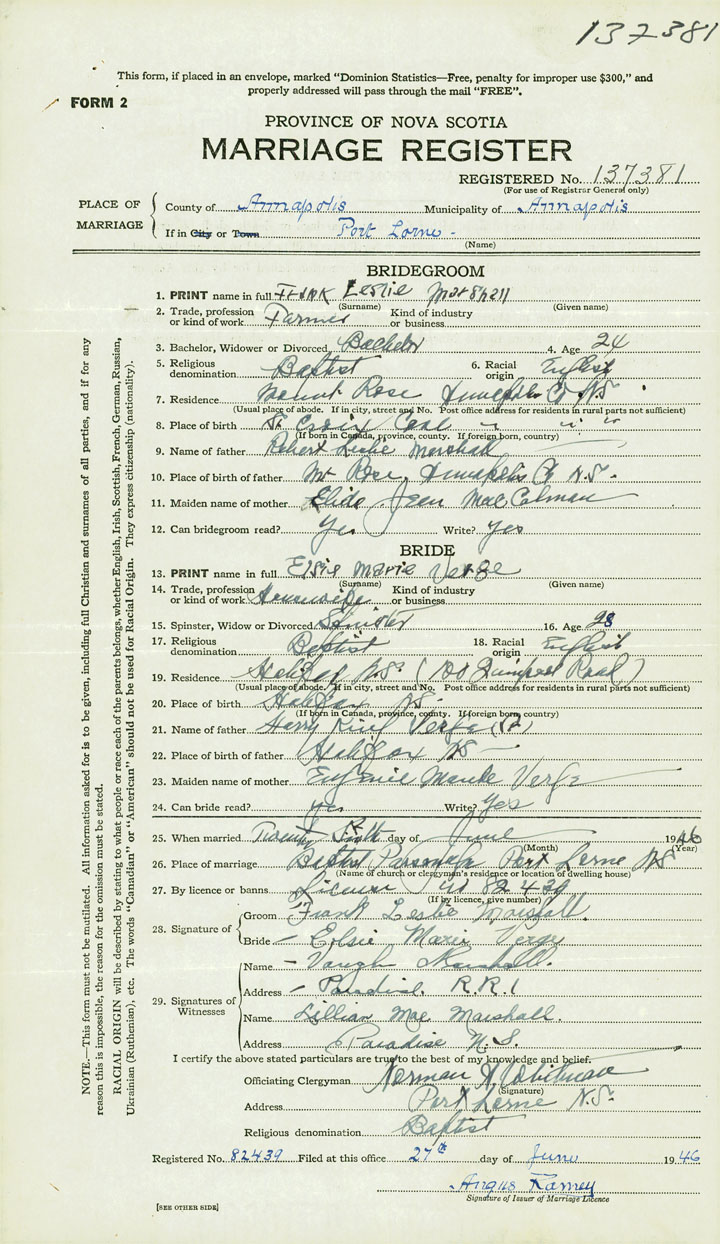 137381
This form, if placed in an envelope, marked "Dominion Statistics—Free, penalty for improper use $300," and
properly addressed will pass through the mail "FREE".
FORM 2
PROVINCE OF NOVA SCOTIA
MARRIAGE REGISTER
REGISTERED No. 137381
(For use of Registrar General only)
PLACE OF MARRIAGE
County of Annapolis Municipality of Annapolis
If in City or Town Port Lorne -
(Name)
BRIDEGROOM
1. PRINT name in full Frank Leslie Marshall
(Surname) (Given name)
2. Trade, profession or kind of work Farmer Kind of industry or business
3. Bachelor, Widower or Divorced Bachelor 4. Age 24
5. Religious denomination Baptist 6. Racial origin English
7. Residence Mount Rose Annapolis Co N.S.
(Usual place of abode. If in city, street and No. Post office address for residents in rural parts not sufficient)
8. Place of birth St Croix Cove " " "
(If born in Canada, province, county. If foreign born, country)
9. Name of father Robert Leslie Marshall
10. Place of birth of father Mt Rose, Annapolis Co N.S.
11. Maiden name of mother Jean
12. Can bridegroom read? Yes Write? Yes
BRIDE
13. PRINT name in full Elsie Marie Verge
(Surname) (Given name)
14. Trade, profession or kind of work Housewife Kind of industry or business
15. Spinster, Widow or Divorced Spinster 16. Age 28
17. Religious denomination Baptist 18. Racial origin English
19. Residence Halifax N.S. (100 Road)
(Usual place of abode. If in city, street and No. Post office address for residents in rural parts not sufficient)
20. Place of birth Halifax NS
(If born in Canada, province, county. If foreign born, country)
21. Name of father Harry King Verge
22. Place of birth of father Halifax NS
23. Maiden name of mother Eugenie Maude Verge
24. Can bride read? yes Write? Yes
25. When married Twenty day of June 1946
(Month) (Year)
26. Place of marriage Baptist Parsonage Port Lorne NS
(Name of church or clergyman's residence or location of dwelling house)
27. By licence or banns License 82439
(If by licence, give number)
28. Signature of
Groom Frank Leslie Marshall.
Bride - Elsie Marie Verge
29. Signatures of Witnesses
Name - Vaugh Marshall.
Address - Paradise. R.R.1
Name Lillian Mae Marshall.
Address Paradise N.S.
I certify the above stated particulars are true to the best of my knowledge and belief.
Officiating Clergyman Norman A Whitman
(Signature)
Address Port Lorne N.S.
Religious denomination Baptist
Registered No. 82439 Filed at this office 27th day of June 1946
Angus Ramey
Signature of Issuer of Marriage Licence
[SEE OTHER SIDE]
NOTE.—This form must not be mutilated. All information asked for is to be given, including full Christian and surnames of all parties, and if for any
reason this is impossible, the reason for the omission must be stated.
RACIAL ORIGIN will be described by stating to what people or race each of the parents belongs, whether English, Irish, Scottish, French, German, Russian,
Ukrainian (Ruthenian), etc. The words "Canadian" or "American" should not be used for Racial Origin. They express citizenship (nationality).